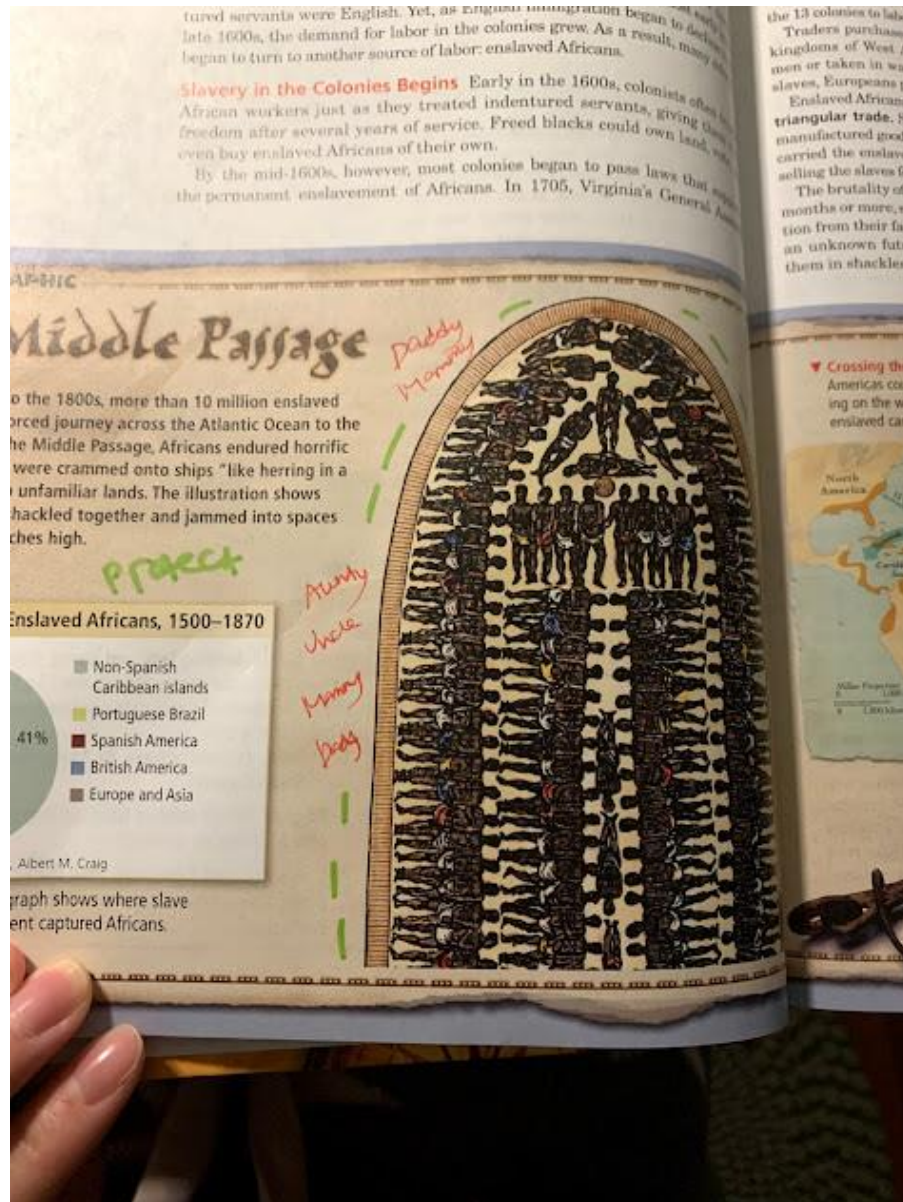 tured servants were English. Yet, as English immigration began to decline
late 1600s, the demand for labor in the colonies grew. As a result, many
began to turn to another source of labor: enslaved Africans.
Slavery in the Colonies Begins Early in the 1600s, colonists often
African workers just as they treated indentured servants, giving
freedom after several years of service. Freed blacks could own land,
even buy enslaved Africans of their own.
By the mid-1600s, however, most colonies began to pass laws that
the permanent enslavement of Africans. In 1705, Virginia's General
APHIC
Middle Passage
o the 1800s, more than 10 million enslaved
orced journey across the Atlantic Ocean to the
he Middle Passage, Africans endured horrific
were crammed onto ships "like herring in a
unfamiliar lands. The illustration shows
hackled together and jammed into spaces
ches high.
project
Daddy
Mammy
Aunty
Uncle
Mammy
Enslaved Africans, 1500–1870
41%
Non-Spanish
Caribbean islands
Portuguese Brazil
Spanish America
British America
Europe and Asia
Albert M. Craig
graph shows where slave
ent captured Africans.
the 13 colonies to
Traders purchase
kingdoms of West
men or taken in
slaves, Europeans
Enslaved African
triangular trade.
manufactured good
carried the enslav
selling the slaves
The brutality of
months or more,
tion from their fa
an unknown
them in shackles
▼ Crossing the
Americas
ing on the w
enslaved
North
America